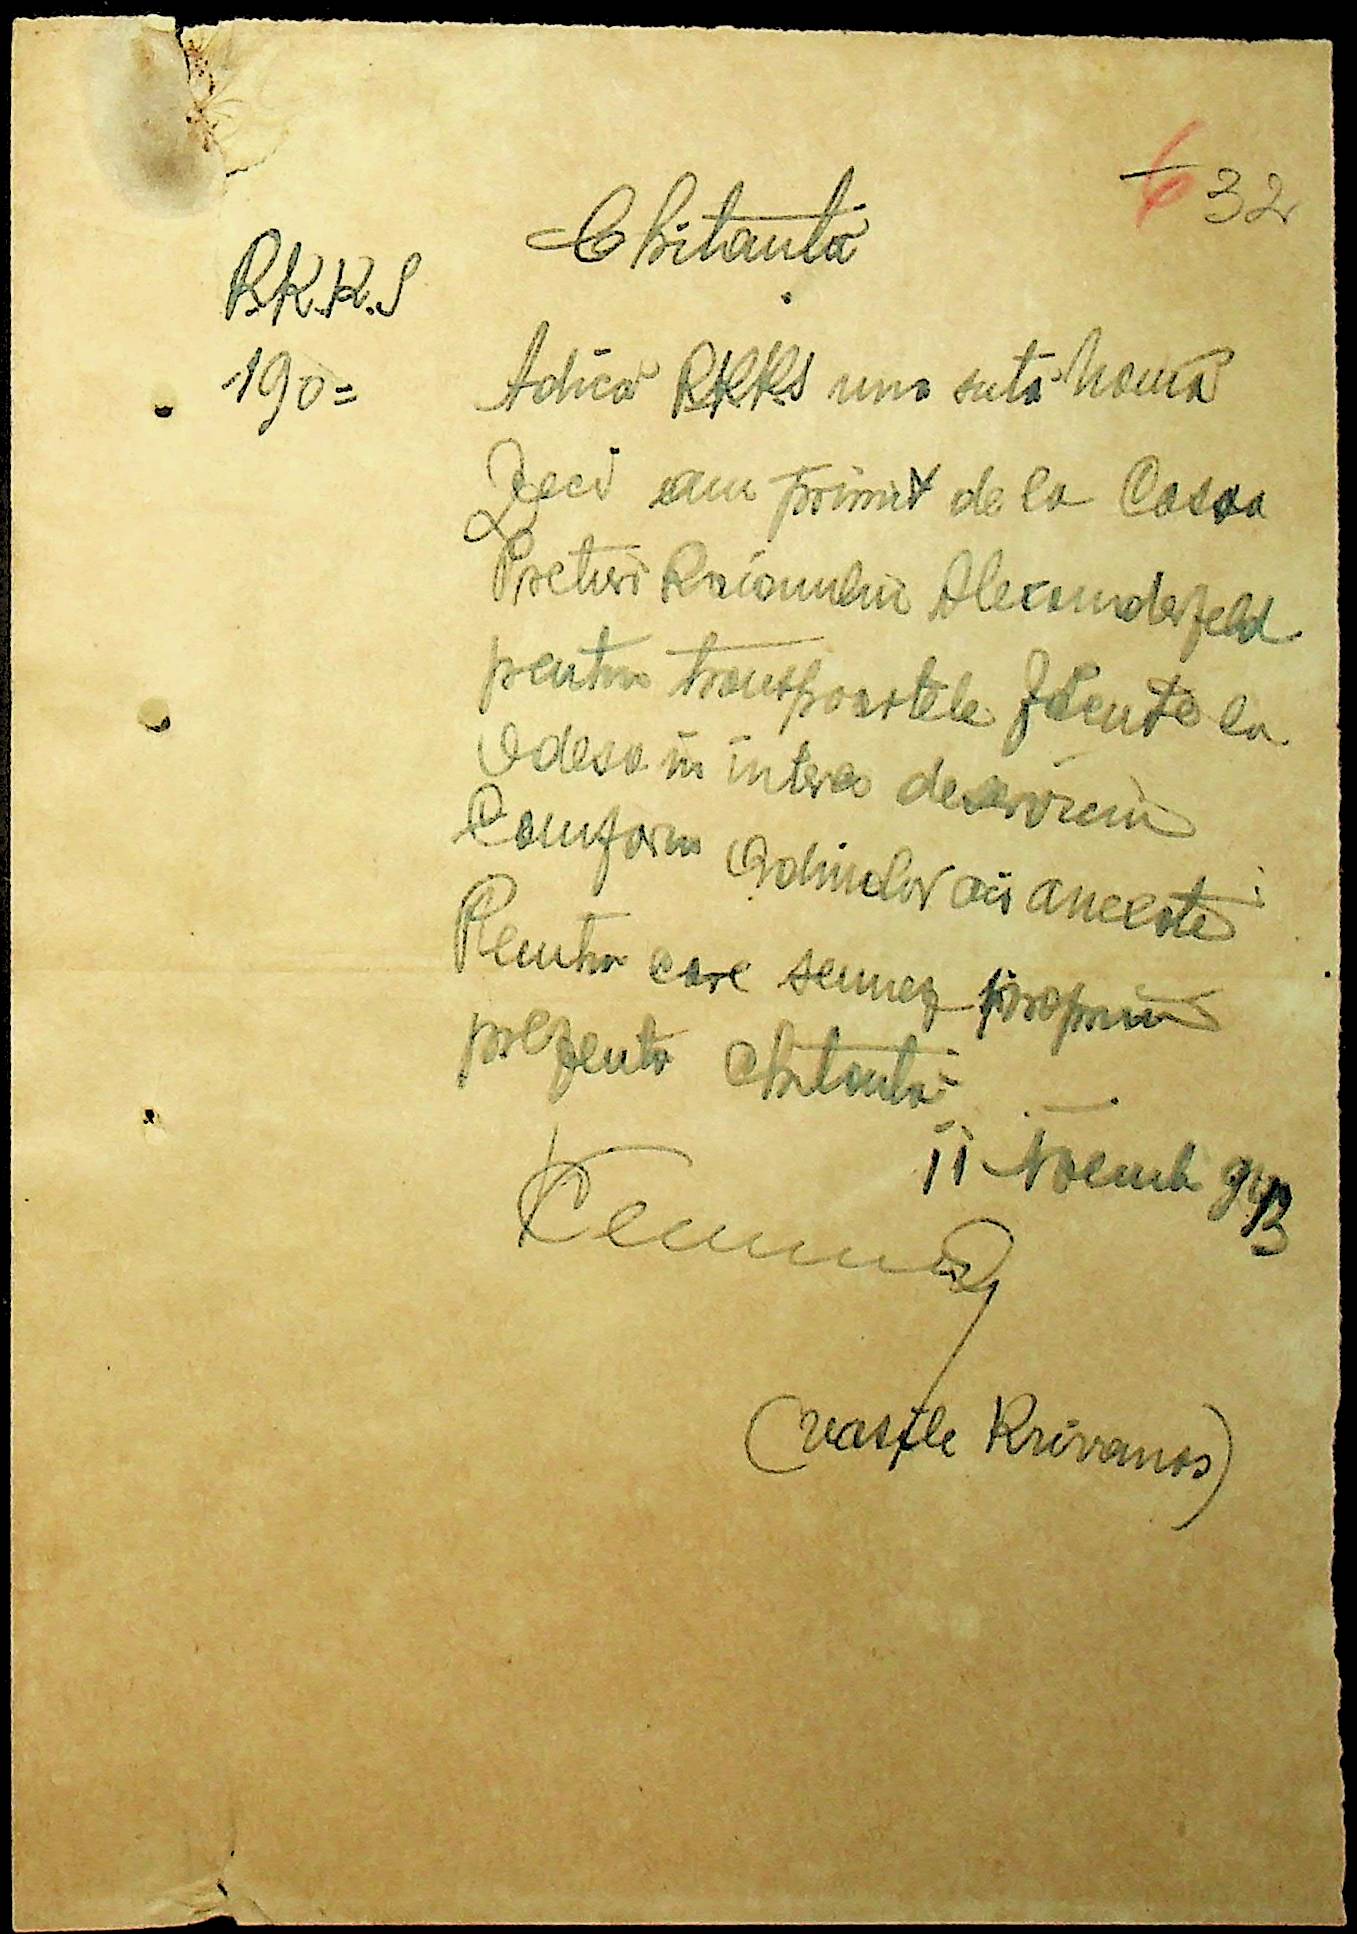 6 32
Chitanta
R.K.K.S
190=
Adică RKKS una sută nouă
Zeci am primit de la Casaa
Preturi Raionului Alexanderfeld
pentru transpoartele făcute la
Odesa in interes deserviciu
Comform Ordinelor aneeste
Pentru care semnez propriu
prezenta chitanta
11 Noemb 943
(Vasile Krivanos)